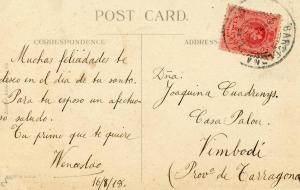 POST CARD.
CORRESPONDENCE
ADDRESS
BARCELONA
Muchas felicidades te
deseo en el dia de tu santo.
Para tu esposo un afectuo
so saludo.
Tu primo que te quiere
Wenceslao
16/8/19.
Dña.
Joaquina Cuadreny
Casa Palou.
Vimbodí
(Provª de Tarragona)